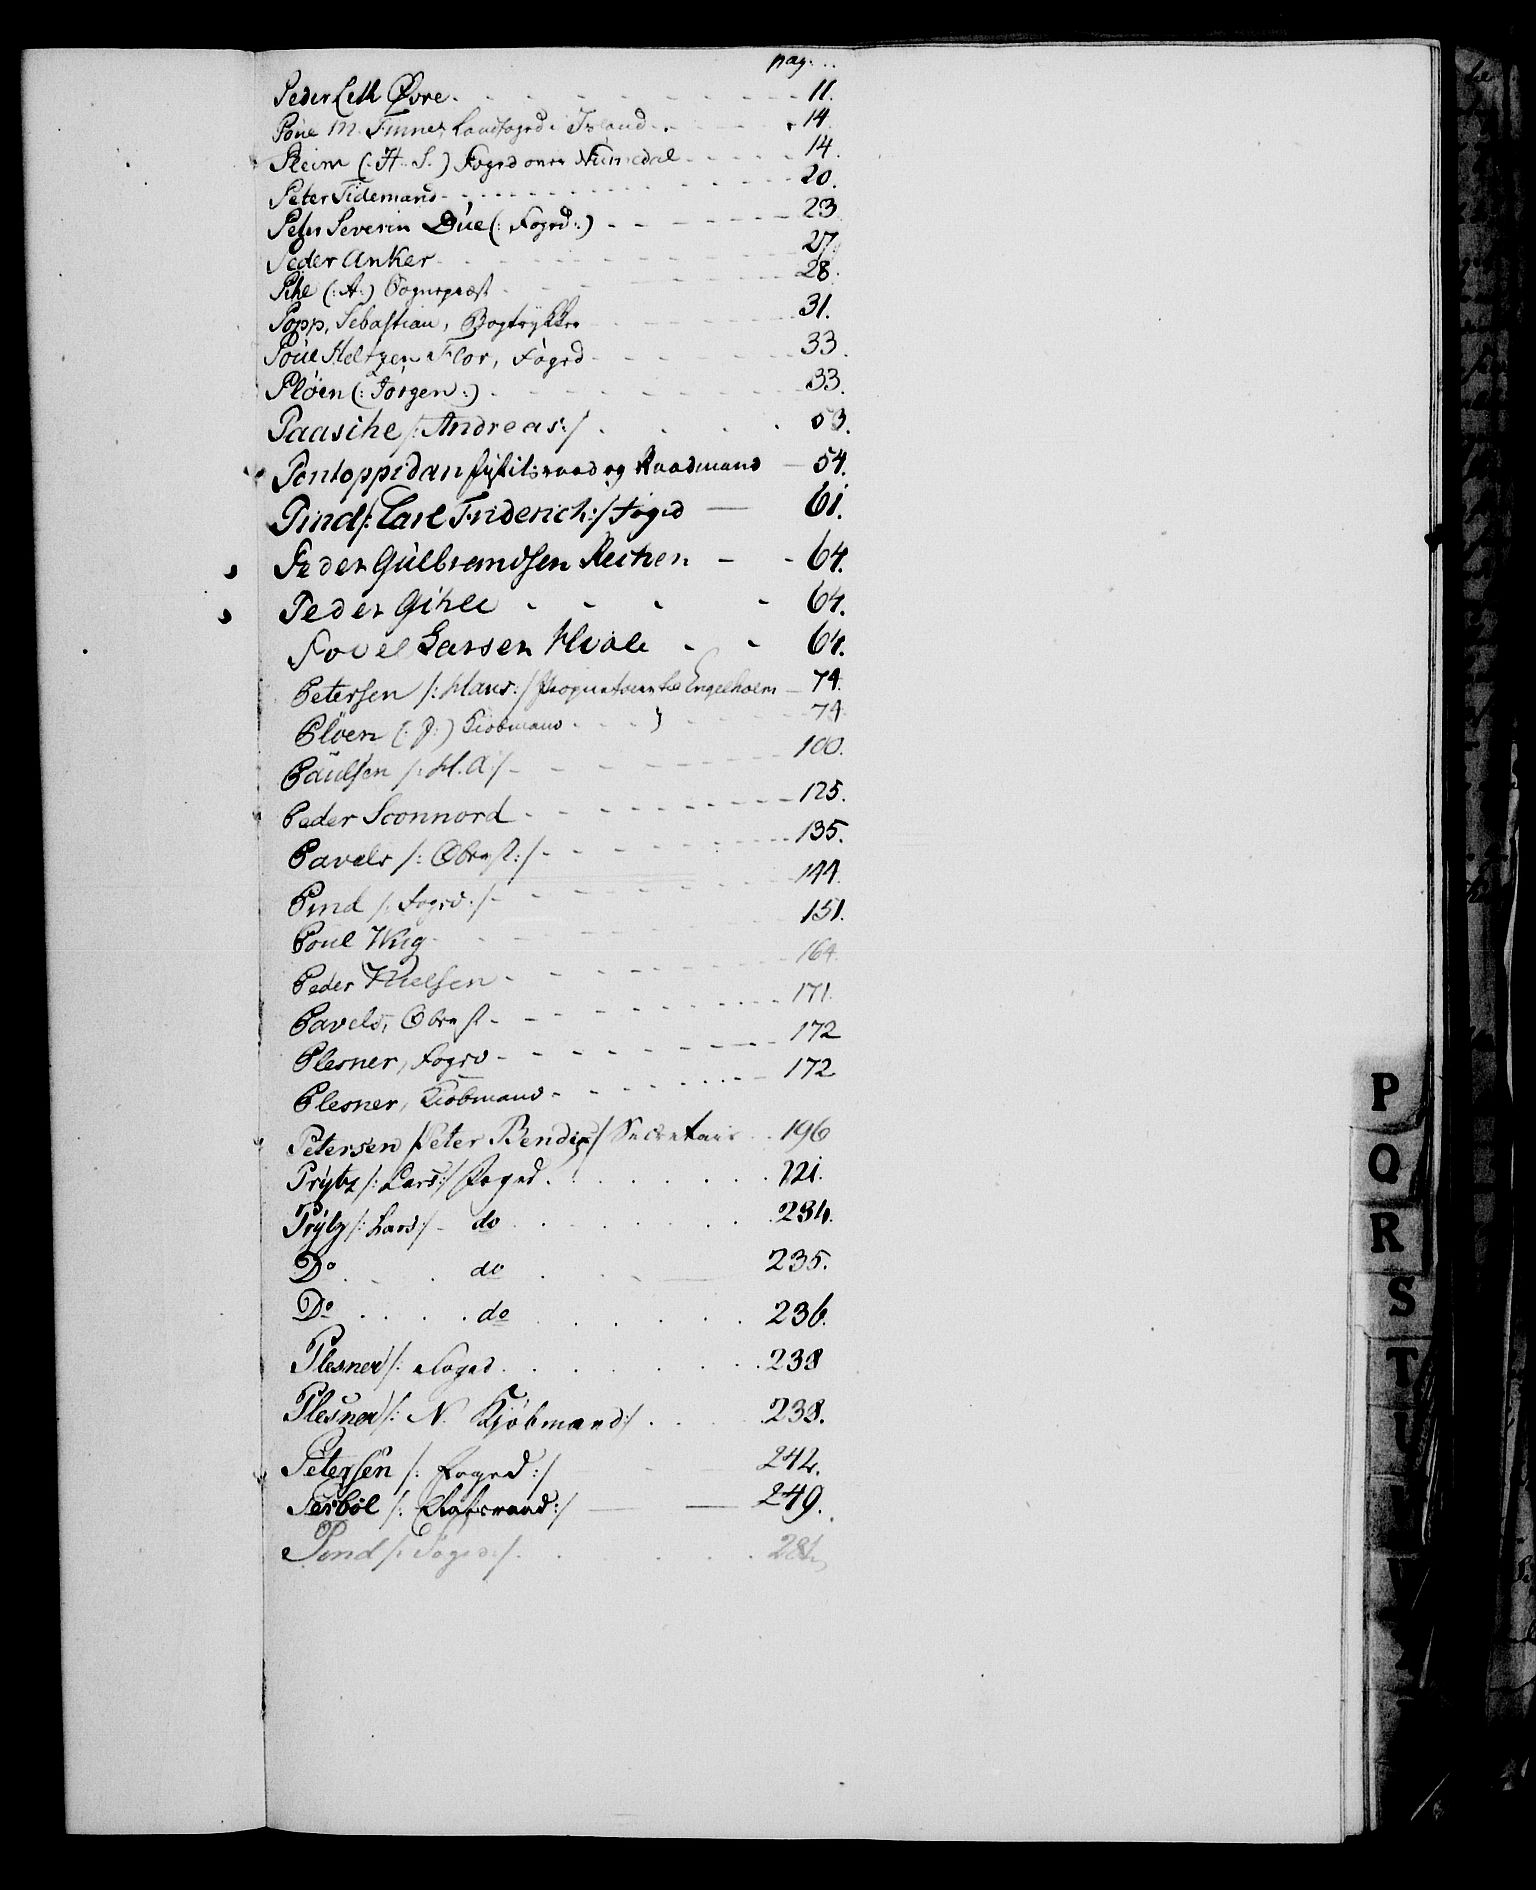 pag.
Peder Leth Øvre. 11.
Poul M. Finne, Landfoged i Island 14.
Pleim (: H. S.) Foged over Numedal 14.
Peter Tidemand 20.
Peter Severin Due (: Foged:) 23
Peder Anker 27.
Pihl (: A:) Sognepræst 28.
Popp, Sebastian, Bogtrykker 31.
Poul Heltzen Flor, Foged 33.
Pløen (: Jørgen:) 33.
Paasche /: Andreas:/ 53.
Pontoppidan Justitsraad og Raadmand 54.
Pind /: Carl Friderich:/ Foged 61.
Peder Gulbrandsen 64.
Peder Gihle 64.
Povel Larsen Hvale 64.
Petersen /: Hans:/ Engelholm 74.
Pløen (: P:) Kiøbmand 74
Paulsen /: H. A:/ 100.
Peder Sconnord 125.
Pavels /: Oberst:/ 135.
Pind /: Foged:/ 144.
Poul Wug 151.
Peder Nielsen 164.
Pavels, Oberst 171.
Plesner, Foged 172
Plesner, Kiøbmand 172
Petersen /Peter Bendix/ Secretair 196
Prytz /: Lars:/ Foged 221.
Prytz /: Lars:/ do 234.
Do do 235.
Do do 236.
Plesner /: Foged 238
Plesner /: N. Kjøbmand:/ 238.
Petersen /: Foged:/ 242.
Perbøl /: Etatsraad:/ 249.
Pind /: Foged:/
P
Q
R
S
T
U
V